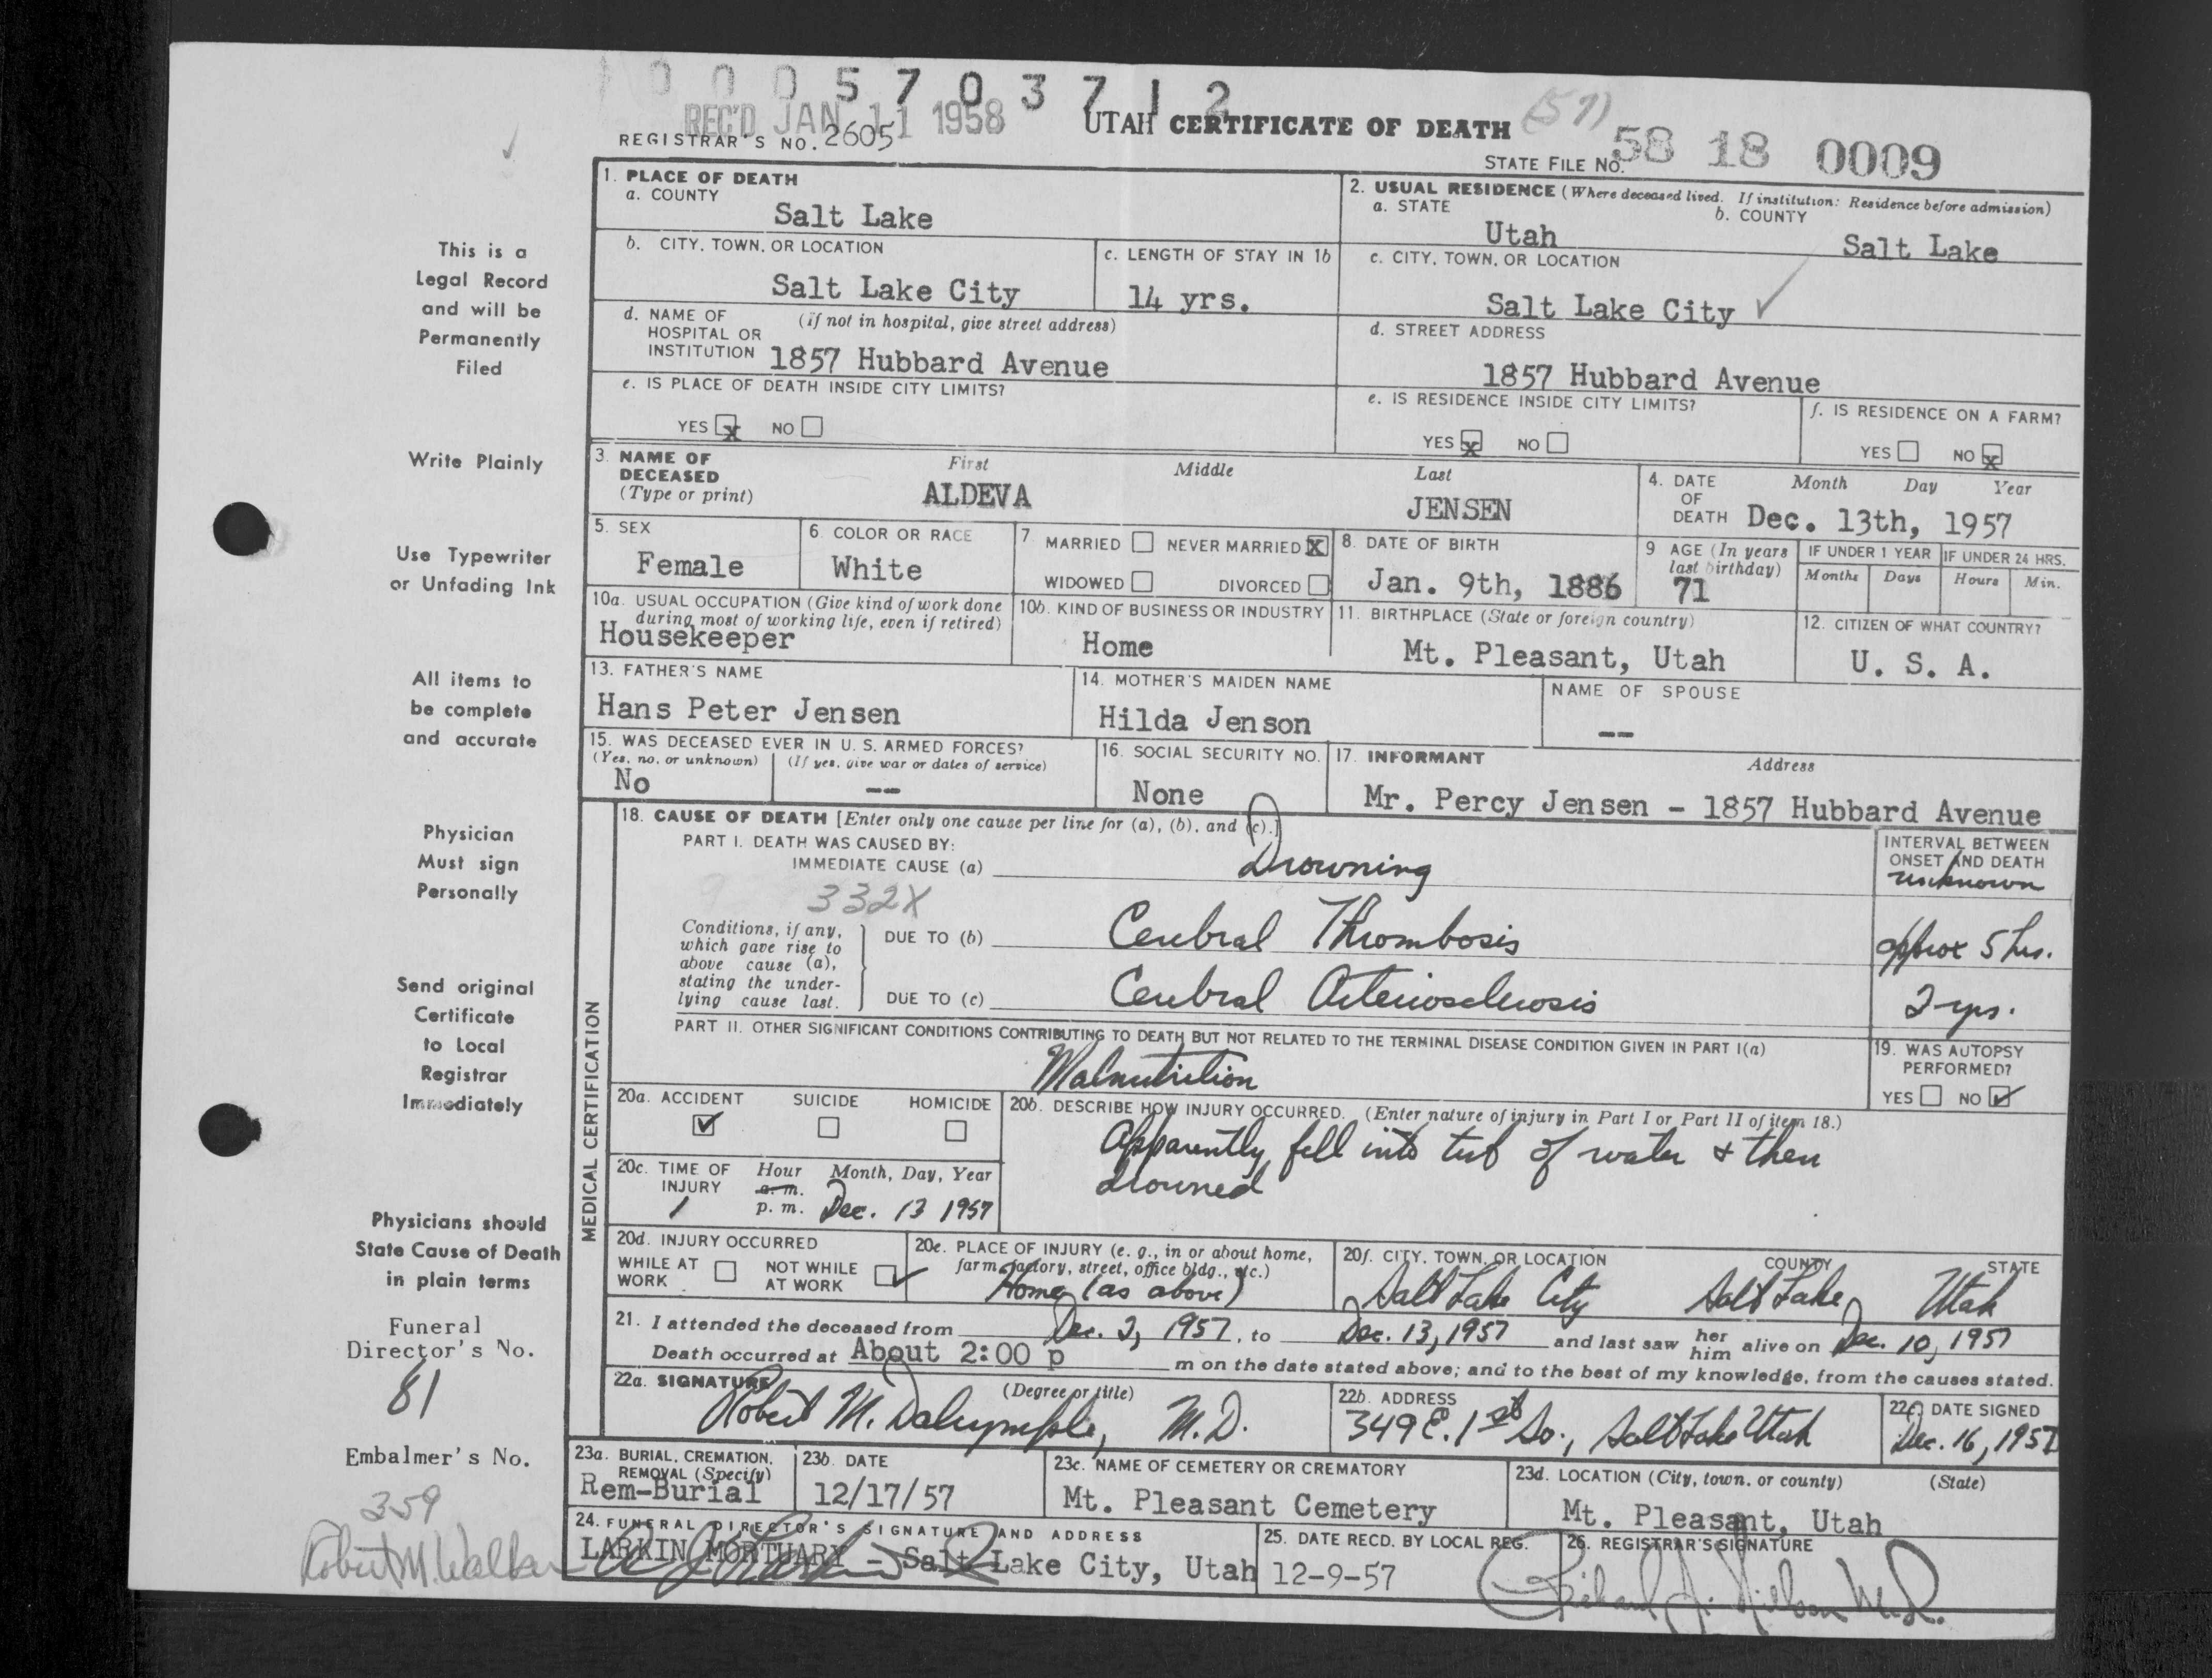 0 0 0 5 7 0 3 7 1 2
REC'D JAN 11 1958
UTAH CERTIFICATE OF DEATH (57)
REGISTRAR'S NO. 2605
STATE FILE NO. 58 18 0009
1. PLACE OF DEATH
a. COUNTY
Salt Lake
2. USUAL RESIDENCE (Where deceased lived. If institution: Residence before admission)
a. STATE
Utah
b. COUNTY
Salt Lake
b. CITY, TOWN, OR LOCATION
Salt Lake City
c. LENGTH OF STAY IN 1b
14 yrs.
c. CITY, TOWN, OR LOCATION
Salt Lake City
d. NAME OF HOSPITAL OR INSTITUTION
(if not in hospital, give street address)
1857 Hubbard Avenue
d. STREET ADDRESS
1857 Hubbard Avenue
e. IS PLACE OF DEATH INSIDE CITY LIMITS?
YES x NO
e. IS RESIDENCE INSIDE CITY LIMITS?
YES x NO
f. IS RESIDENCE ON A FARM?
YES NO x
3. NAME OF DECEASED
(Type or print)
First Middle Last
ALDEVA JENSEN
4. DATE OF DEATH
Month Day Year
Dec. 13th, 1957
5. SEX
Female
6. COLOR OR RACE
White
7. MARRIED NEVER MARRIED X
WIDOWED DIVORCED
8. DATE OF BIRTH
Jan. 9th, 1886
9 AGE (In years last birthday)
71
IF UNDER 1 YEAR
Months Days
IF UNDER 24 HRS.
Hours Min.
10a. USUAL OCCUPATION (Give kind of work done during most of working life, even if retired)
Housekeeper
10b. KIND OF BUSINESS OR INDUSTRY
Home
11. BIRTHPLACE (State or foreign country)
Mt. Pleasant, Utah
12. CITIZEN OF WHAT COUNTRY?
U. S. A.
13. FATHER'S NAME
Hans Peter Jensen
14. MOTHER'S MAIDEN NAME
Hilda Jenson
NAME OF SPOUSE
--
15. WAS DECEASED EVER IN U. S. ARMED FORCES?
(Yes, no, or unknown) (If yes, give war or dates of service)
No --
16. SOCIAL SECURITY NO.
None
17. INFORMANT Address
Mr. Percy Jensen - 1857 Hubbard Avenue
MEDICAL CERTIFICATION
18. CAUSE OF DEATH [Enter only one cause per line for (a), (b), and (c).]
PART I. DEATH WAS CAUSED BY:
IMMEDIATE CAUSE (a) Drowning
332X
INTERVAL BETWEEN ONSET AND DEATH
unknown
Conditions, if any, which gave rise to above cause (a), stating the underlying cause last.
DUE TO (b) Cerebral Thrombosis
approx 5 hrs.
DUE TO (c) Cerebral Arteriosclerosis
2 yrs.
PART II. OTHER SIGNIFICANT CONDITIONS CONTRIBUTING TO DEATH BUT NOT RELATED TO THE TERMINAL DISEASE CONDITION GIVEN IN PART I(a)
Malnutrition
19. WAS AUTOPSY PERFORMED?
YES NO ✓
20a. ACCIDENT SUICIDE HOMICIDE
✓
20b. DESCRIBE HOW INJURY OCCURRED. (Enter nature of injury in Part I or Part II of item 18.)
Apparently fell into tub of water & then
drowned
20c. TIME OF INJURY
Hour Month, Day, Year
a. m.
1 p. m. Dec. 13 1957
20d. INJURY OCCURRED
WHILE AT WORK NOT WHILE AT WORK ✓
20e. PLACE OF INJURY (e. g., in or about home, farm, factory, street, office bldg., etc.)
Home (as above)
20f. CITY, TOWN, OR LOCATION COUNTY STATE
Salt Lake City Salt Lake Utah
21. I attended the deceased from Dec. 2, 1957, to Dec. 13, 1957 and last saw her him alive on Dec. 10, 1957
Death occurred at About 2:00 p m on the date stated above; and to the best of my knowledge, from the causes stated.
22a. SIGNATURE (Degree or title)
Robert M. Dalrymple, M.D.
22b. ADDRESS
349 E. 1st So., Salt Lake Utah
22c. DATE SIGNED
Dec. 16, 1957
23a. BURIAL, CREMATION, REMOVAL (Specify)
Rem-Burial
23b. DATE
12/17/57
23c. NAME OF CEMETERY OR CREMATORY
Mt. Pleasant Cemetery
23d. LOCATION (City, town, or county) (State)
Mt. Pleasant, Utah
24. FUNERAL DIRECTOR'S SIGNATURE AND ADDRESS
LARKIN MORTUARY - Salt Lake City, Utah
25. DATE RECD. BY LOCAL REG.
12-9-57
26. REGISTRAR'S SIGNATURE
This is a
Legal Record
and will be
Permanently
Filed
Write Plainly
Use Typewriter
or Unfading Ink
All items to
be complete
and accurate
Physician
Must sign
Personally
Send original
Certificate
to Local
Registrar
Immediately
Physicians should
State Cause of Death
in plain terms
Funeral
Director's No.
81
Embalmer's No.
359
Robert M. Walker